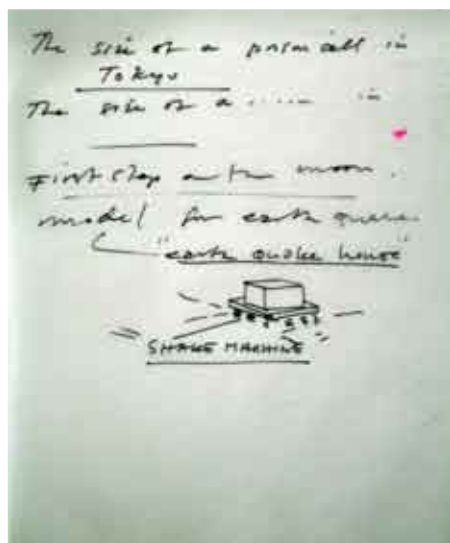 The size of a prison cell in
Tokyo
The size of a ..... in
First step on the moon.
model for earth
"earth quake house"
SHAKE MACHINE